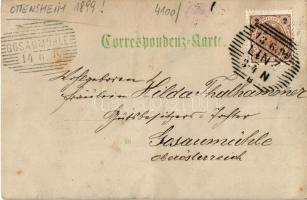 OTTENSHEIM 1899!
4100/
GOSAUMÜHLE
14 6
Correspondenz-Karte
2
LINZ
Hochgeboren
Fräulein Hilda Thalhammer
Gutsbesitzers-Tochter
in
Gosaumühle
Oberösterreich